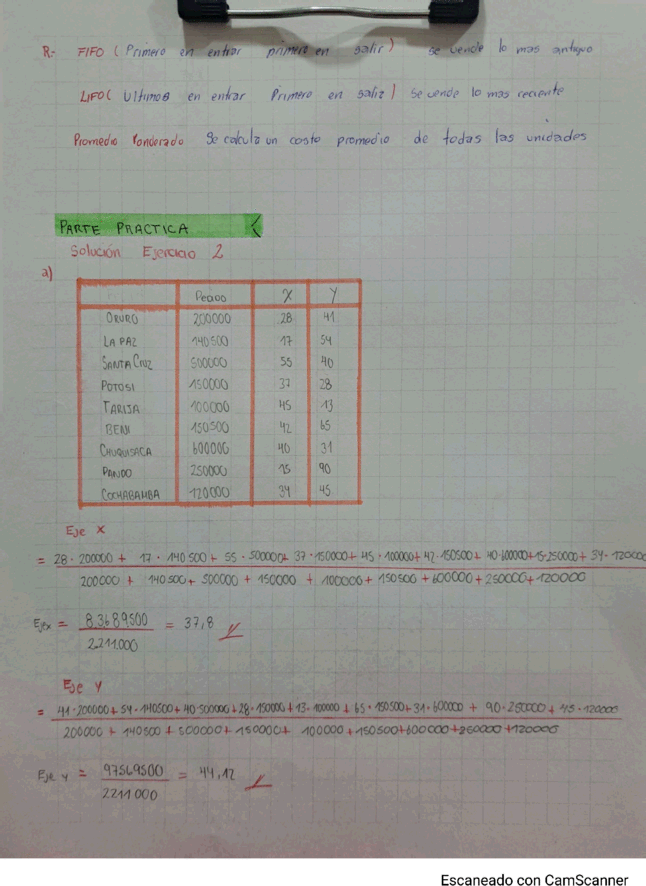 R.- FIFO ( Primero en entrar primero en salir ) se vende lo mas antiguo
LIFO ( Ultimos en entrar Primero en salir ) se vende lo mas reciente
Promedio Ponderado Se calcula un costo promedio de todas las unidades
PARTE PRACTICA
Solución Ejercicio 2
a)
Pedido X Y
ORURO 200000 28 41
LA PAZ 140500 17 54
SANTA CRUZ 500000 55 40
POTOSI 150000 37 28
TARIJA 100000 45 13
BENI 150500 42 65
CHUQUISACA 600000 40 31
PANDO 250000 15 90
COCHABAMBA 120000 34 45
Eje X
= 28 · 200000 + 17 · 140500 + 55 · 500000 + 37 · 150000 + 45 · 100000 + 42 · 150500 + 40 · 600000 + 15 · 250000 + 34 · 120000
200000 + 140500 + 500000 + 150000 + 100000 + 150500 + 600000 + 250000 + 120000
Ejex = 83689500 = 37,8
2211.000
Eje Y
= 41 · 200000 + 54 · 140500 + 40 · 500000 + 28 · 150000 + 13 · 100000 + 65 · 150500 + 31 · 600000 + 90 · 250000 + 45 · 120000
200000 + 140500 + 500000 + 150000 + 100000 + 150500 + 600000 + 250000 + 120000
Eje y = 97569500 = 44,12
2211 000
Escaneado con CamScanner